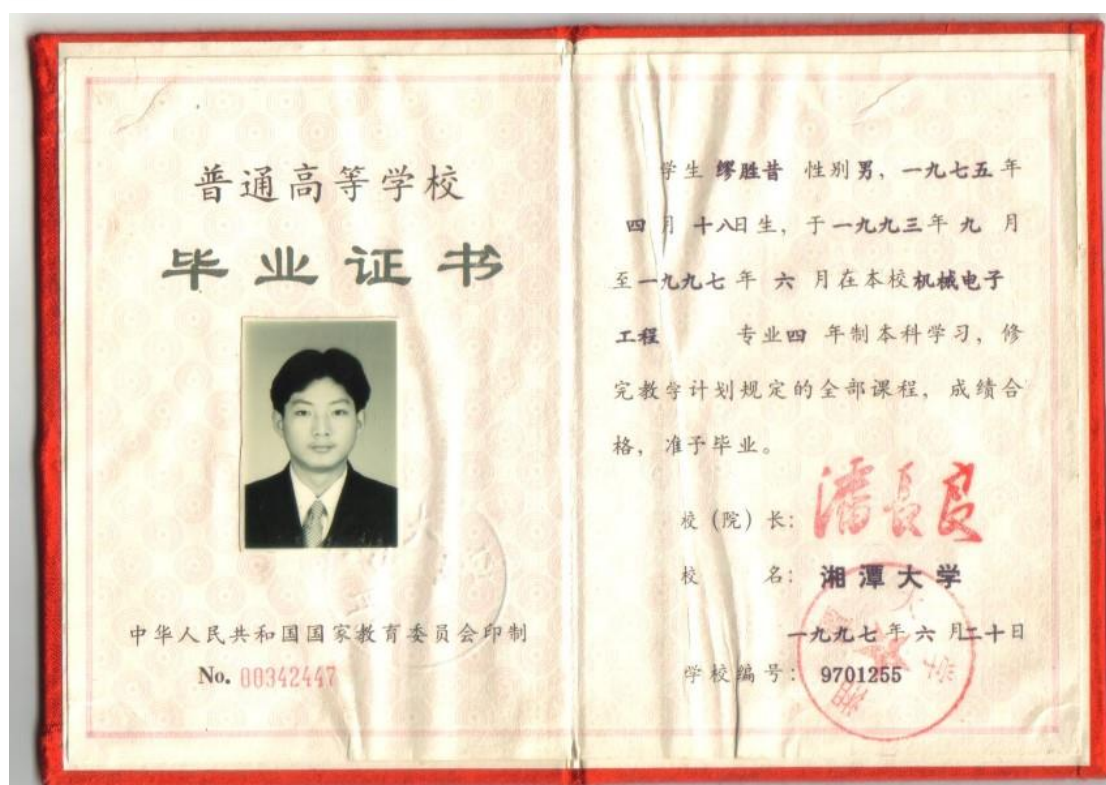 普通高等学校
毕业证书
中华人民共和国国家教育委员会印制
No. 00342447
学生 缪胜昔 性别男，一九七五年
四月 十八日生，于一九九三年 九 月
至一九九七 年 六 月在本校机械电子
工程 专业四 年制本科学习，修
完教学计划规定的全部课程，成绩合
格，准予毕业。
校（院）长：潘長良
校 名：湘潭大学
一九九七 年 六 月二十日
学校编号：9701255